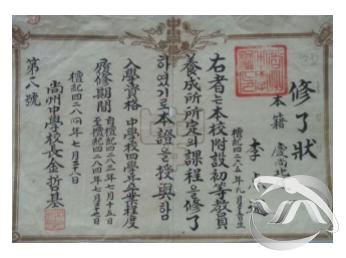 修了狀
本籍 慶尙北
李
檀紀四二六五年九月
右者는本校附設初等敎員
養成所所定의課程을修了
하였기로本證을授與함
入學資格 中學校四學年卒業程度
履修期間 自檀紀四二八三年七月十五日
至檀紀四二八四年七月
檀紀四二八四年七月
尙州中學校長金哲基
第八號